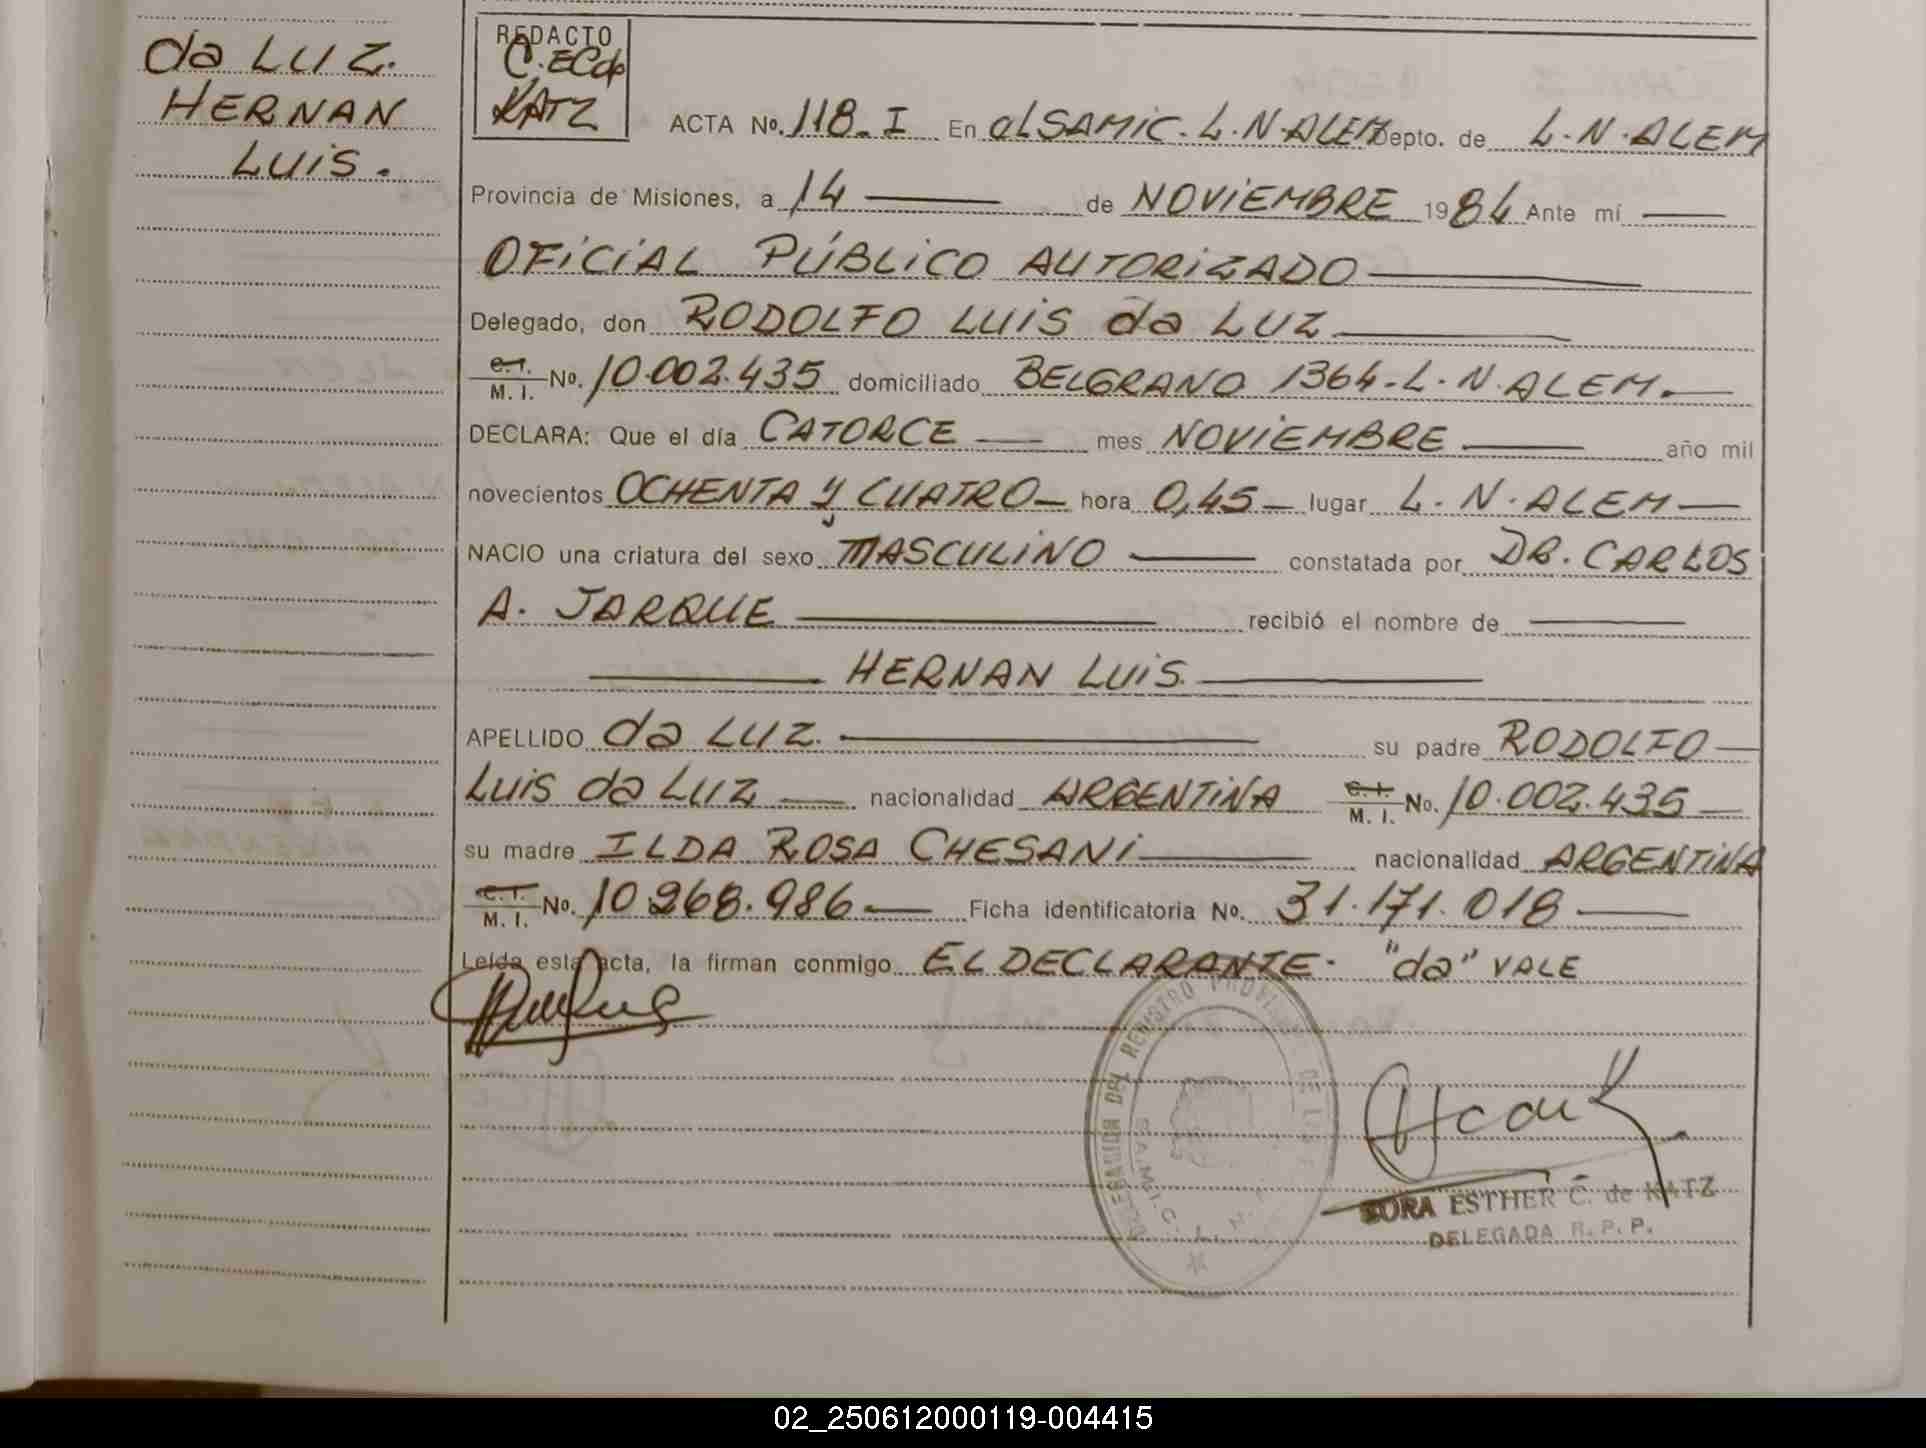 da LUZ.
HERNAN
LUIS.
REDACTO
C. ECde
KATZ
ACTA No. 118-I En elSAMIC. L.N.ALEM Depto. de L.N.ALEM
Provincia de Misiones, a 14 de NOVIEMBRE 1984 Ante mí
OFICIAL PÚBLICO AUTORIZADO
Delegado, don RODOLFO LUIS da LUZ
C.I. M.I. No. 10.002.435 domiciliado BELGRANO 1364-L.N.ALEM.
DECLARA: Que el día CATORCE mes NOVIEMBRE año mil
novecientos OCHENTA y CUATRO hora 0,45 lugar L.N.ALEM
NACIO una criatura del sexo MASCULINO constatada por DR. CARLOS
A. JARQUE recibió el nombre de
HERNAN LUIS.
APELLIDO da LUZ. su padre RODOLFO
LUIS da LUZ nacionalidad ARGENTINA C.I. M.I. No. 10.002.435
su madre ILDA ROSA CHESANI nacionalidad ARGENTINA
C.I. M.I. No. 10.268.986 Ficha identificatoria No. 31.171.018
Leída esta acta, la firman conmigo EL DECLARANTE. "da" VALE
DELEGACION DEL REGISTRO PROVINCIAL DE LAS
S.A.M.I.C. L. N.
ESTHER C. de KATZ
DELEGADA R. P. P.
02_250612000119-004415